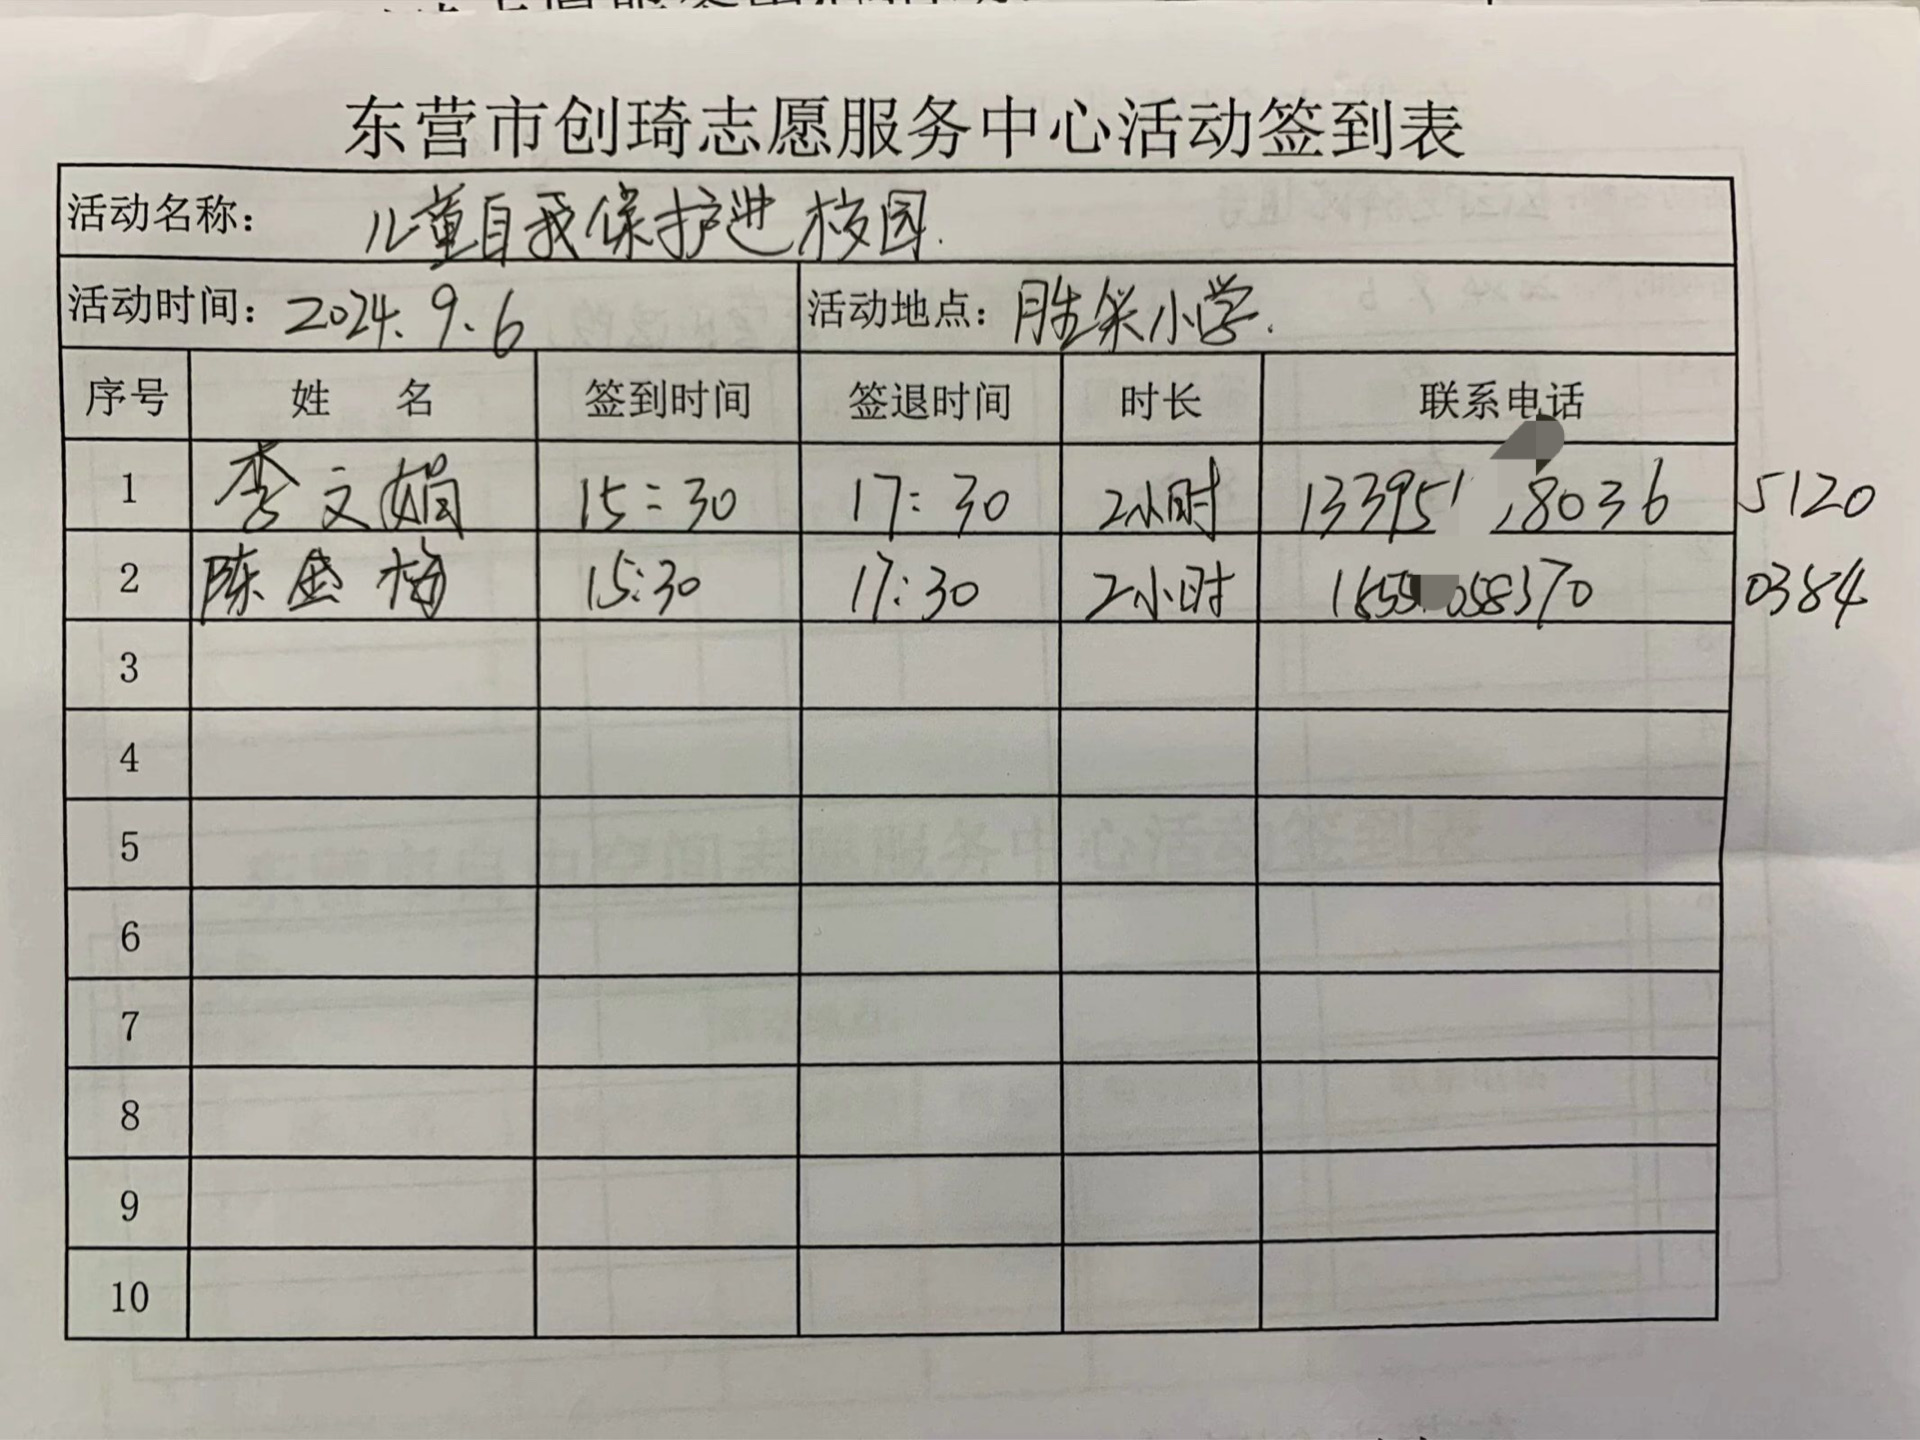 东营市创琦志愿服务中心活动签到表
活动名称: 儿童自我保护进校园.
活动时间: 2024.9.6 活动地点: 胜采小学.
序号 姓 名 签到时间 签退时间 时长 联系电话
1 李文娟 15:30 17:30 2小时 13395 8036 5120
2 陈盛梅 15:30 17:30 2小时 1655 058370 0384
3
4
5
6
7
8
9
10